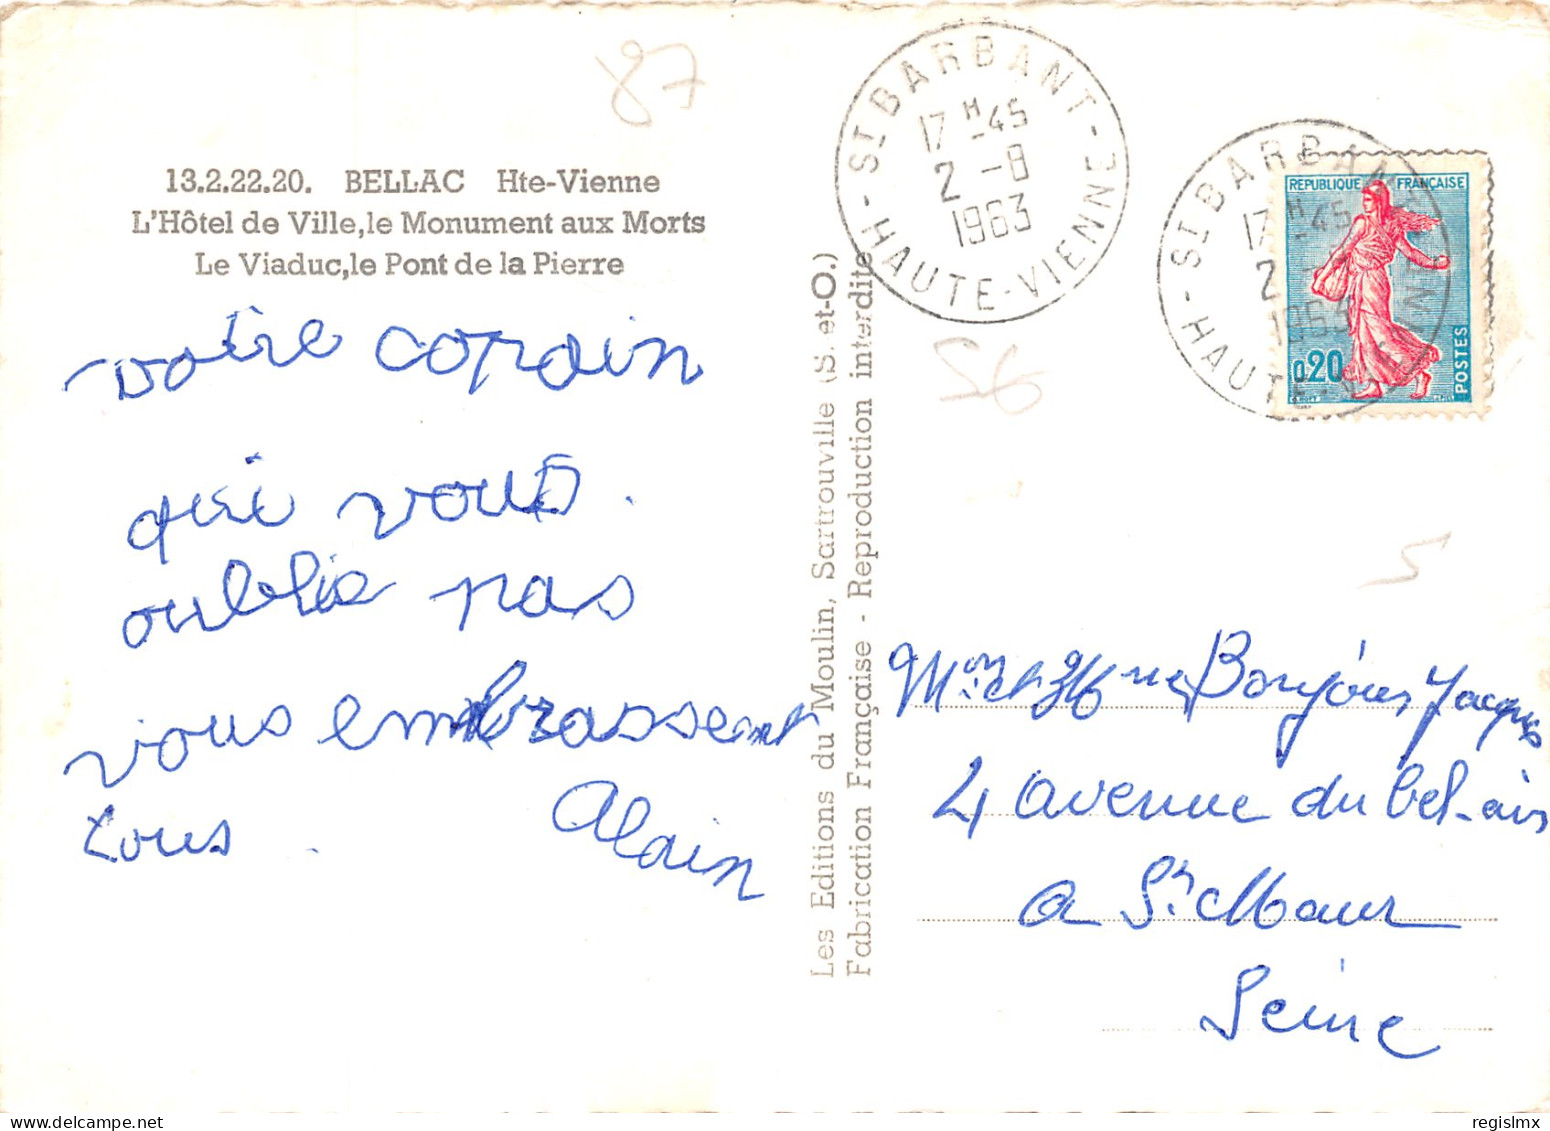 87
13.2.22.20. BELLAC Hte-Vienne
L'Hôtel de Ville,le Monument aux Morts
Le Viaduc,le Pont de la Pierre
votre copain
qui vous
oublie pas
vous embrassent
tous. Alain
Les Editions du Moulin, Sartrouville (S. et-O.)
Fabrication Française - Reproduction interdite
ST BARBANT - HAUTE-VIENNE -
17H-45
2 -8
1963
ST BARBANT - HAUTE-VIENNE -
17H-45
2 -8
1963
REPUBLIQUE FRANÇAISE
0,20
POSTES
95
5
Mr et Mme Bonjour Jacques
4 avenue du Bel-air
a St Maur
Seine
regislmx